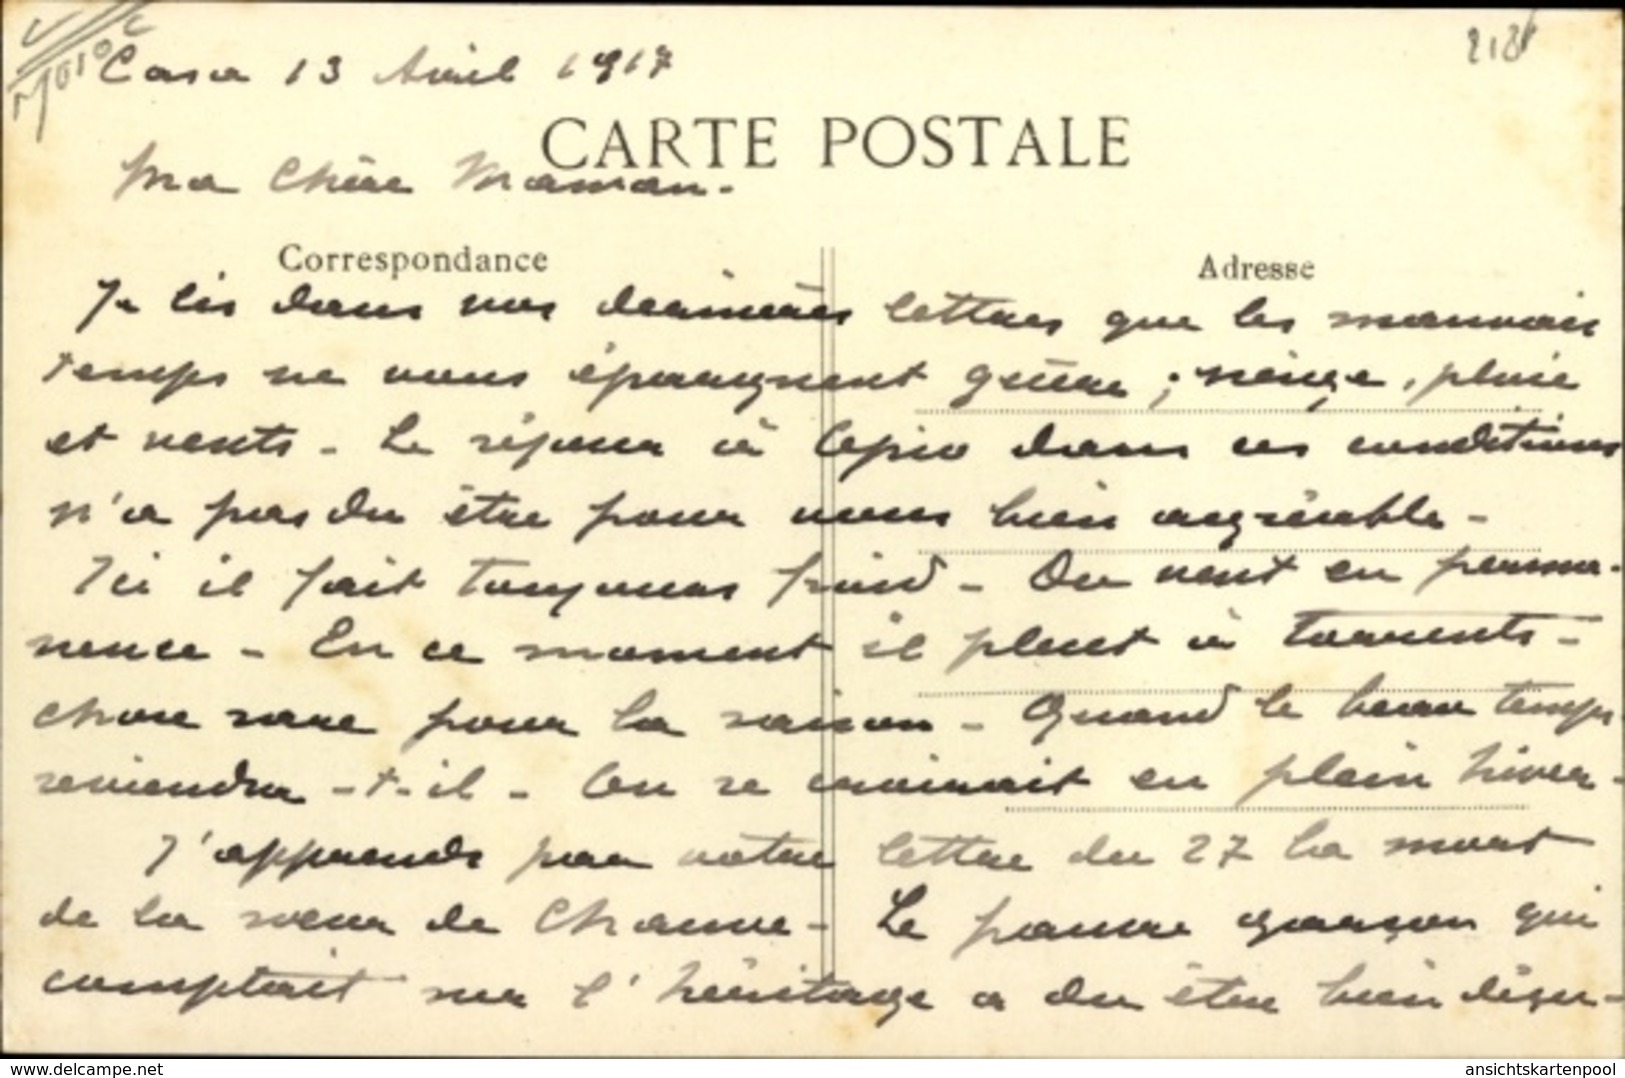 Casa 13 Avril 1917
CARTE POSTALE
Ma Chère Maman.
Correspondance
Adresse
Je lis dans vos dernières lettres que les mauvais
temps ne vous épargnent guère ; neige, pluie
et vents - Le séjour à Cepio dans ces conditions
n'a pas du être pour vous bien agréable -
Ici il fait toujours froid - Du vent en perma-
nence - En ce moment il pleut à torrents -
chose rare pour la saison - Quand le beau temps
reviendra - t - il - On se croirait en plein hiver -
J'apprends par votre lettre du 27 la mort
de la soeur de Chauve - Le pauvre garçon qui
comptait sur l'héritage a du être bien déçu -
delcampe.net
ansichtskartenpool